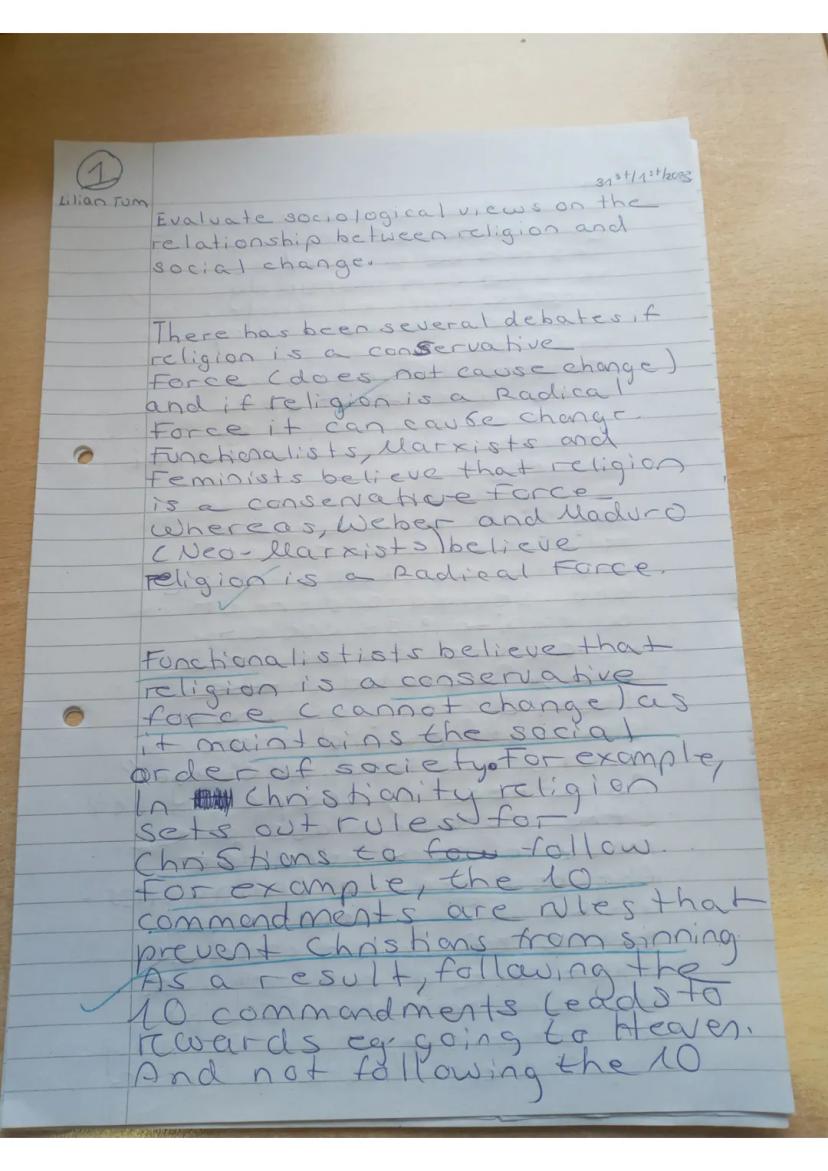 1
31st/1st/2023
Lilian Tum
Evaluate sociological views on the
relationship between religion and
social change.
There has been several debates if
religion is a conservative
force (does not cause change)
and if religion is a Radical
force it can cause change
Functionalists, Marxists and
Feminists believe that religion
is a conservative force
Whereas, Weber and Maduro
(Neo-Marxists) believe
religion is a Radical Force.
Functionalistists believe that
religion is a conservative
force (cannot change) as
it maintains the social
order of society. For example,
In Christianity religion
sets out rules for
Christians to follow.
For example, the 10
commandments are rules that
prevent Christians from sinning
As a result, following the
10 commandments leads to
rewards eg. going to Heaven.
And not following the 10